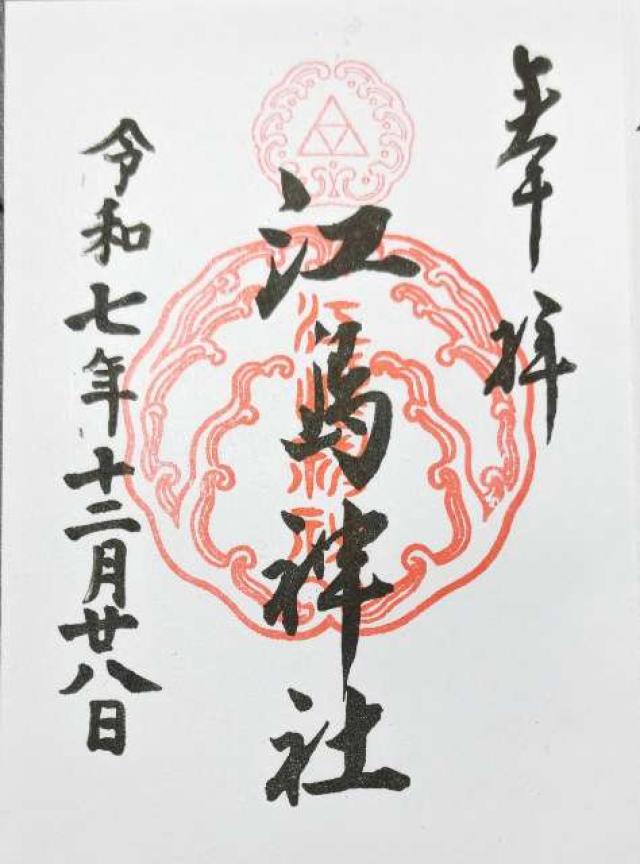 奉拝
江島神社
令和七年十二月廿八日